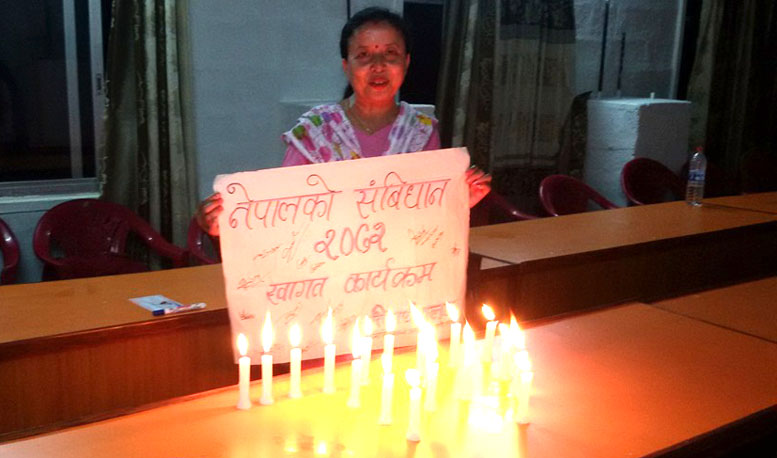 नेपालको संबिधान
२०७२
स्वागत कार्यक्रम